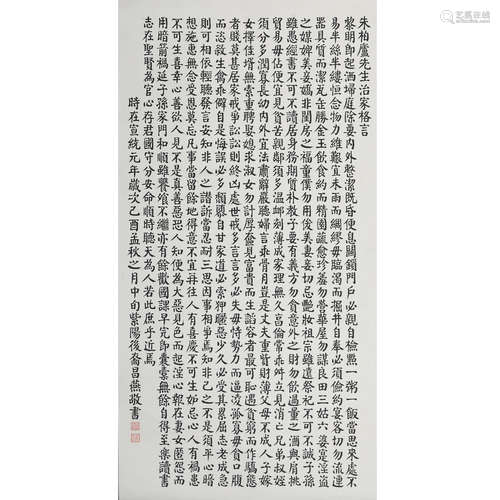 朱柏廬先生治家格言
黎明即起洒掃庭除要內外整潔既昏便息關鎖門戶必親自檢點一粥一飯當思來處不
易半絲半縷恒念物力維艱宜未雨而綢繆毋臨渴而掘井自奉必須儉約宴客切勿流連
器具質而潔瓦缶勝金玉飲食約而精園蔬愈珍羞勿營華屋勿謀良田三姑六婆寔淫盜
之媒婢美妾嬌非閨房之福童僕勿用俊美妻妾切忌艷妝祖宗雖遠祭祀不可不誠子孫
雖愚經書不可不讀居身務期質朴教子要有義方勿貪意外之財勿飲過量之酒與肩挑
貿易毋佔便宜見貧苦親鄰須多溫卹刻薄成家理無久享倫常乖舛立見消亡兄弟叔姪
須分多潤寡長幼內外宜法肅辭嚴聽婦言乖骨肉豈是丈夫重貲財薄父母不成人子嫁
女擇佳壻無索重聘娶媳求淑女勿計厚奩見富貴而生諂容者最可恥遇貧窮而作驕態
者賤莫甚居家戒爭訟訟則終凶處世戒多言言多必失毋恃勢力而逼凌孤寡毋貪口腹
而恣殺生禽乖僻自是悔誤必多頹惰自甘家道必索狎暱惡少久必受其累屈志老成急
則可相依輕聽發言安知非人之譖訴當忍耐三思因事相爭焉知非己之不是須平心暗
想施惠無念受恩莫忘凡事當留餘地得意不宜再往人有喜慶不可生妒忌心人有禍患
不可生喜幸心善欲人見不是真善惡恐人知便為大惡見色而起淫心報在妻女匿怨而
用暗箭禍延子孫家門和順雖饔飱不繼亦有餘歡國課早完即囊橐無餘自得至樂讀書
志在聖賢為官心存君國守分安命順時聽天為人若此庶乎近焉
時在宣統元年歲次乙酉孟秋之月中旬紫陽後裔昌燕敬書